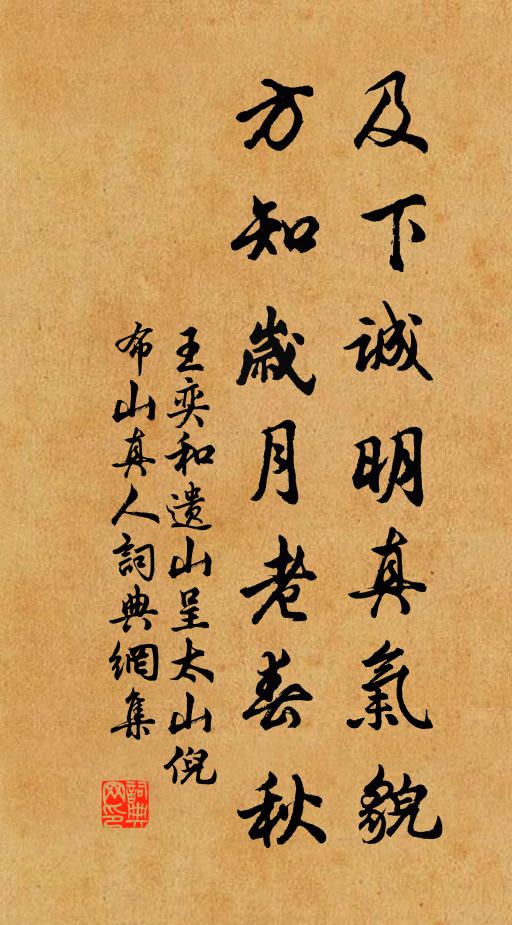 及下誠明真氣貌
方知歲月老春秋
王奕和遺山呈太山倪
布山真人詞典網集
詞典網印